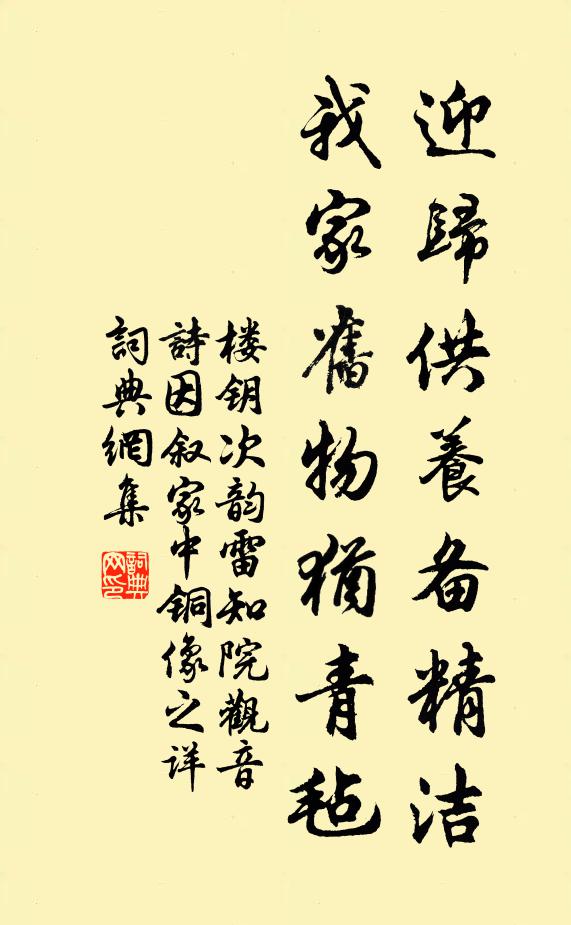 迎歸供養备精洁
我家舊物猶青毡
楼钥次韵雷知院觀音
詩因叙家中铜像之详
詞典網集
詞典
网印